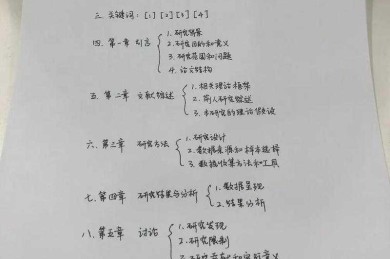 三 关键词：[1] [2] [3] [4]
四. 第一章 引言
1. 研究背景
2. 研究目的和意义
3. 研究范围和问题
4. 论文结构
五. 第二章 文献综述
1. 相关理论框架
2. 前人研究综述
3. 本研究的理论假设
六. 第三章 研究方法
1. 研究设计
2. 数据来源和样本选择
3. 数据收集方法和工具
七. 第四章 研究结果与分析
1. 数据呈现
2. 结果分析
八. 第五章 讨论
1. 研究发现
2. 研究限制